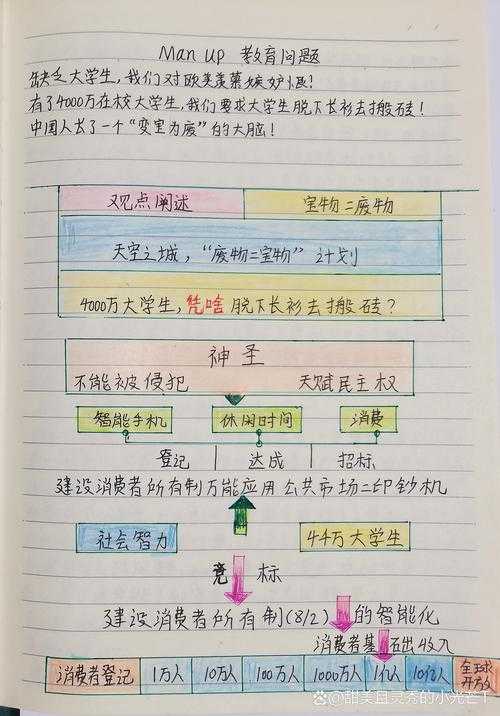 Man up 教育问题
缺乏大学生，我们对欧美羡慕嫉妒恨！
有了4000万在校大学生，我们要求大学生脱下长衫去搬砖！
中国人长了一个“变宝为废”的大脑！
观点阐述 宝物二废物
天空之城，“废物二宝物”计划
4000万大学生，凭啥脱下长衫去搬砖？
神圣
不能被侵犯 天赋民主权
智能手机 休闲时间 消费
登记 达成 招标
建设消费者所有制万能应用公共市场二印钞机
社会智力 44万大学生
竞标
建设消费者所有制(8/2)的智能化
消费者基础出收入
消费者登记 1万人 10万人 100万人 1000万人 1亿人 10亿人 全球开放
@甜美且灵秀的小光芒T